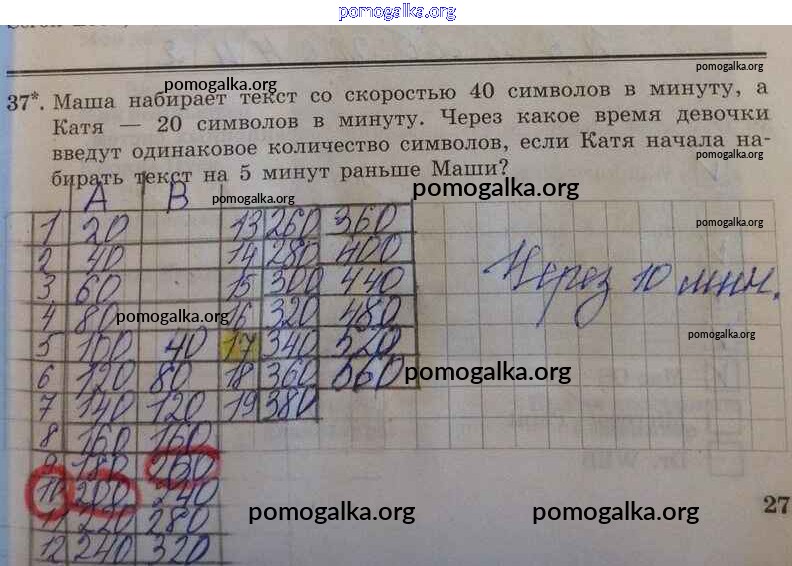 pomogalka.org
pomogalka.org
pomogalka.org
37*. Маша набирает текст со скоростью 40 символов в минуту, а
Катя — 20 символов в минуту. Через какое время девочки
введут одинаковое количество символов, если Катя начала на-
pomogalka.org
бирать текст на 5 минут раньше Маши?
pomogalka.org
A B
pomogalka.org
1 20 13 260 360
pomogalka.org
2 40 14 280 400
3 60 15 300 440
Через 10 мин.
4 80 16 320 480
pomogalka.org
5 100 40 17 340 520
pomogalka.org
6 120 80 18 360 560
pomogalka.org
7 140 120 19 380
8 160 160
9 180 200
10 200 240
11 220 280
pomogalka.org pomogalka.org
27
12 240 320